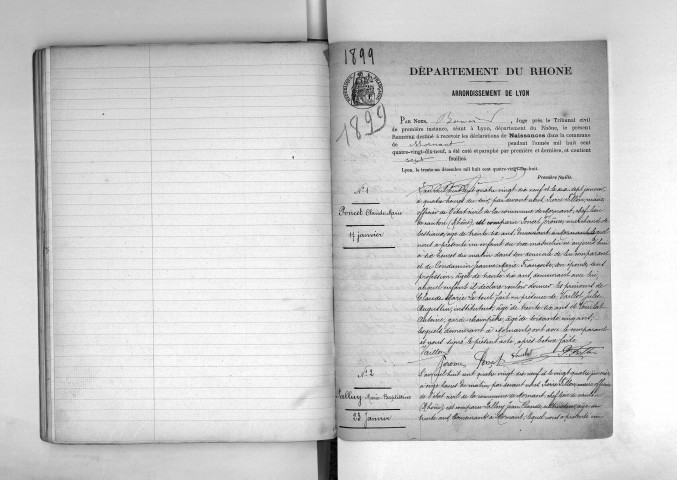 1899
1899
DÉPARTEMENT DU RHONE
ARRONDISSEMENT DE LYON
PAR NOUS, , Juge près le Tribunal civil
de première instance, séant à Lyon, département du Rhône, le présent
REGISTRE destiné à recevoir les déclarations de Naissances dans la commune
de Mornant pendant l'année mil huit cent
quatre-vingt-dix-neuf, a été coté et paraphé par première et dernière, et contient
sept feuilles.
Lyon, le trente un décembre mil huit cent quatre-vingt-dix-huit.
Première feuille.
N° 1
Poncet Claude Marie
17 janvier
L'an mil huit cent quatre vingt dix neuf et le dix sept janvier,
à quatre heures du soir, par devant nous Pierre , maire
officier de l'état civil de la commune de Mornant, chef lieu
de canton (Rhône), est comparu Poncet , marchand de
bestiaux, âgé de trente six ans, demeurant à Mornant, lequel
nous a présenté un enfant du sexe masculin né aujourd'hui
à dix heures du matin dans son domicile de lui comparant
et de Condamin Françoise, son épouse, sans
profession, âgée de trente six ans, demeurant avec lui,
auquel enfant il déclare vouloir donner les prénoms de
Claude Marie. Le tout fait en présence de Vaillot Jules
Augustin, instituteur, âgé de trente six ans et
Antoine, garde champêtre, âgé de soixante cinq ans,
lesquels demeurant à Mornant, ont avec le comparant
et nous signé le présent acte, après lecture faite
Poncet
N° 2
Marie
23 Janvier
L'an mil huit cent quatre vingt dix neuf et le vingt quatre janvier
à onze heures du matin, par devant nous Pierre , maire officier
de l'état civil de la commune de Mornant, chef lieu de canton
(Rhône), est comparu Jean Claude, , âgé de
trente ans, demeurant à Mornant, lequel nous a présenté un